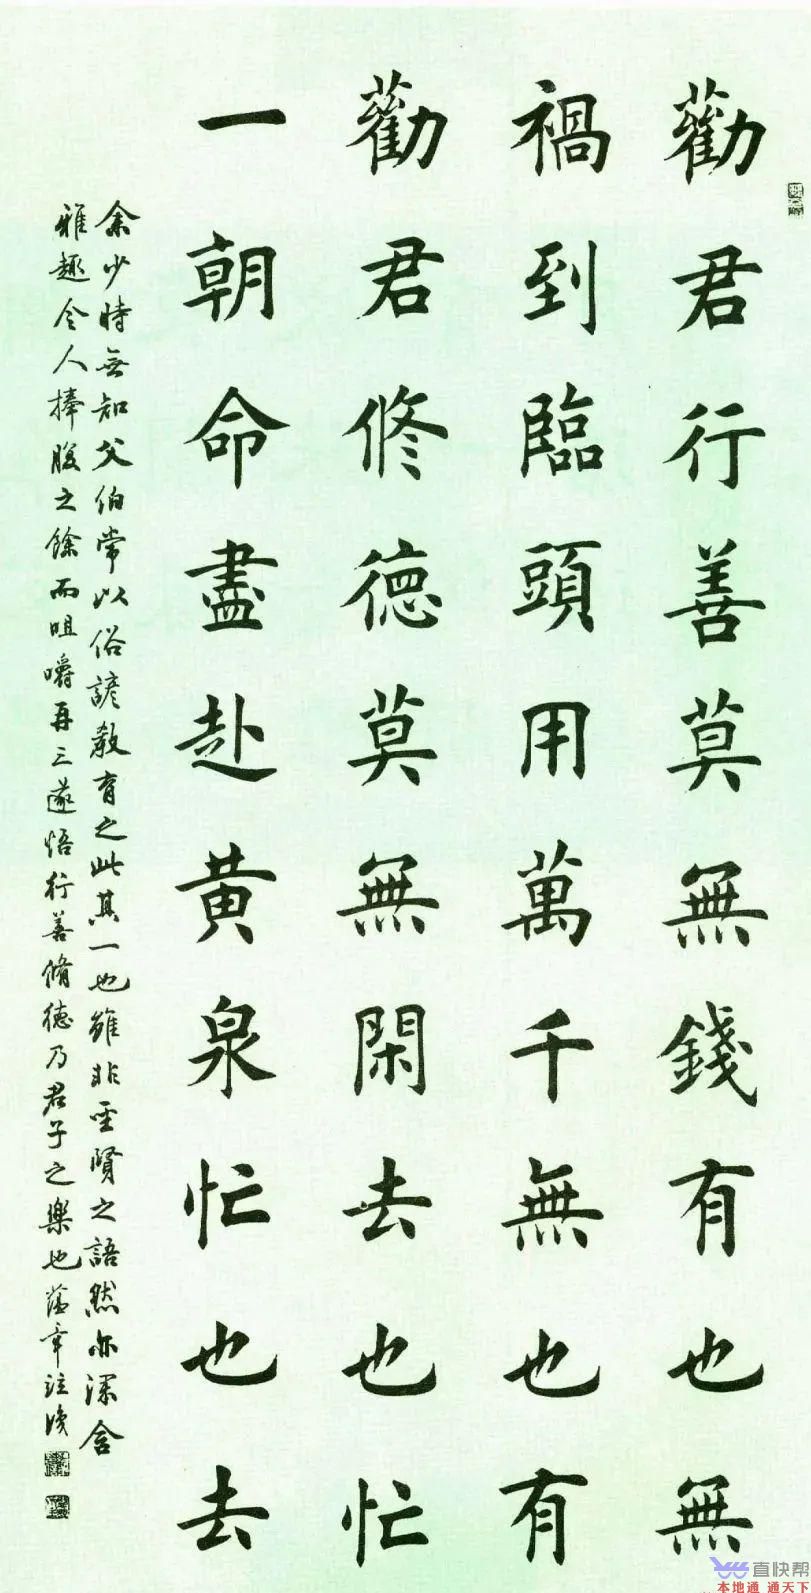 勸君行善莫無錢有也無
禍到臨頭用萬千無也有
勸君修德莫無閑去也忙
一朝命盡赴黄泉忙也去
余少時無知父伯常以俗諺教育之此其一也雖非聖賢之語然亦深含
雅趣令人捧腹之餘而咀嚼再三遂悟行善脩德乃君子之樂也
直快帮
本地通 通天下